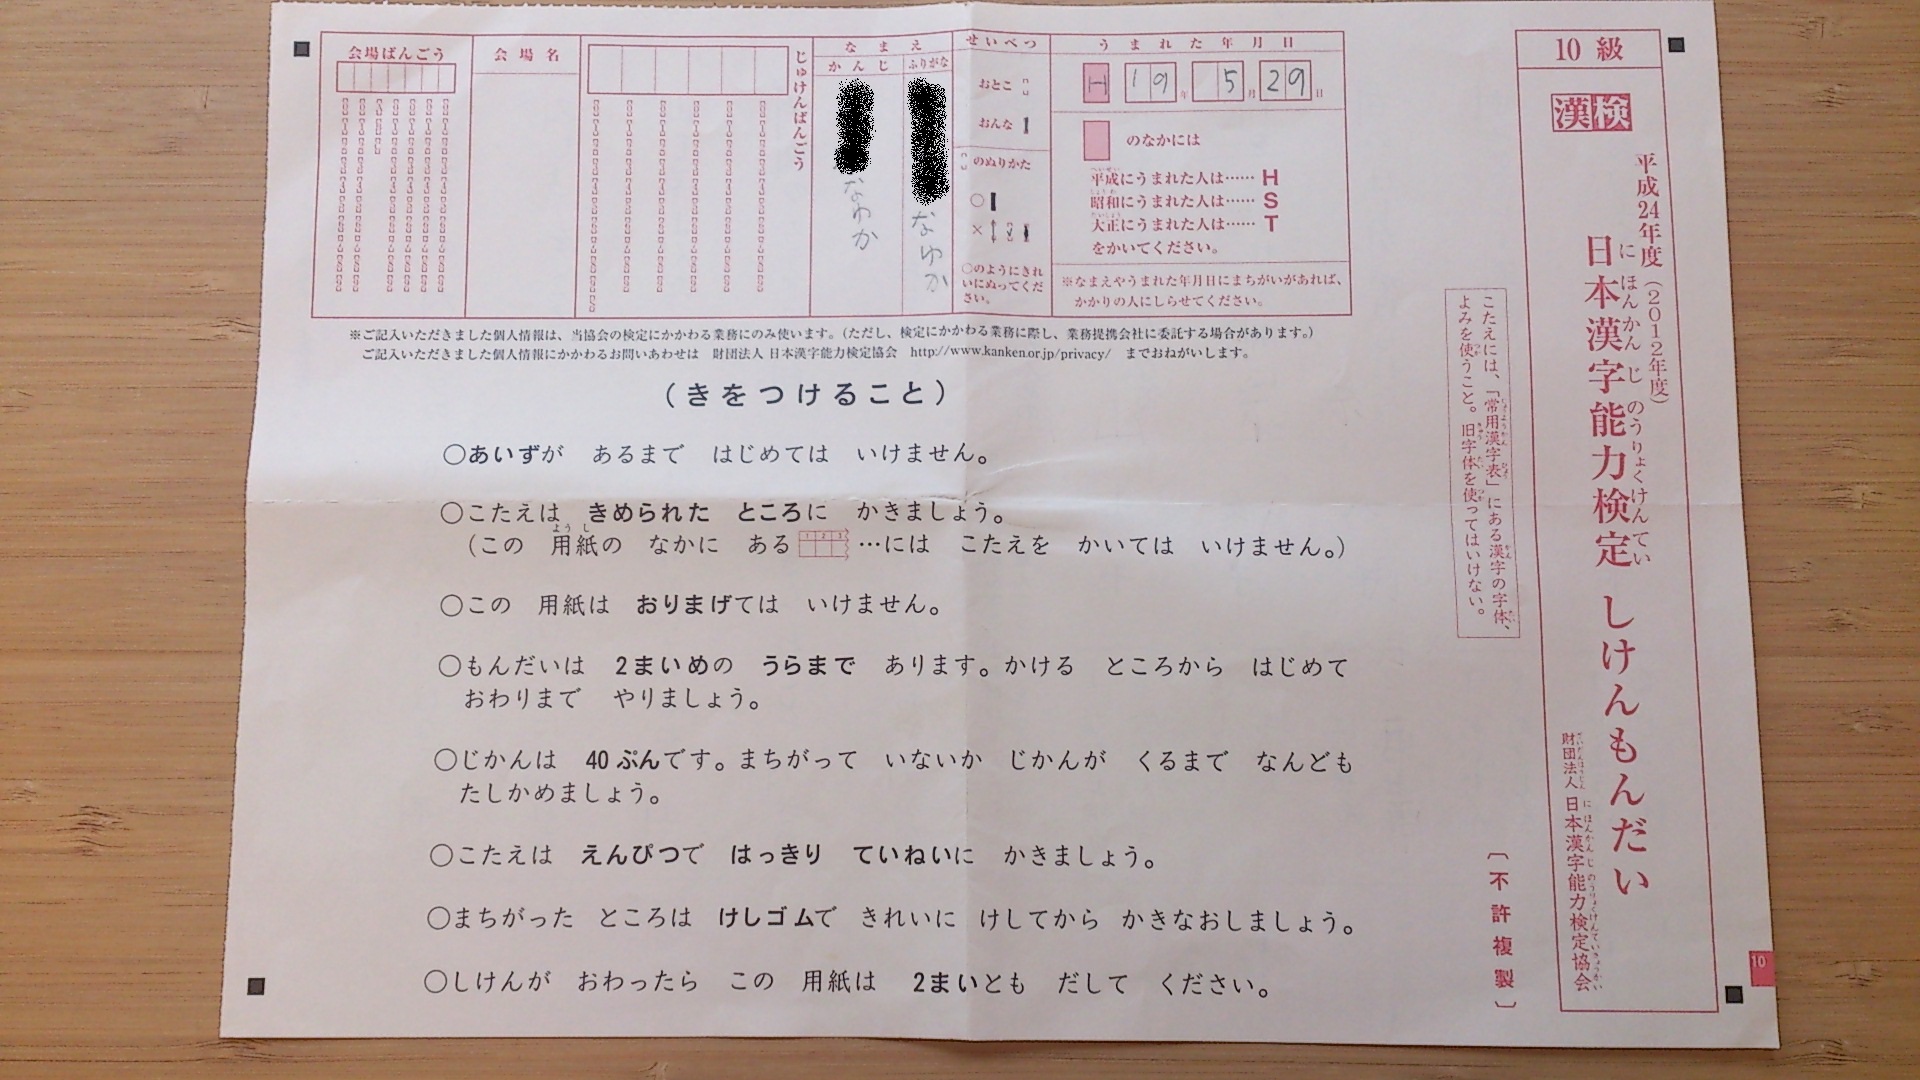 会場ばんごう
会場名
じゅけんばんごう
なまえ
かんじ
ふりがな
なゆか
なゆか
せいべつ
おとこ
おんな
のぬりかた
○
×
○のようにきれ
いにぬってくだ
さい。
うまれた年月日
H 19年 5月29日
のなかには
平成にうまれた人は……H
昭和にうまれた人は……S
大正にうまれた人は……T
をかいてください。
※なまえやうまれた年月日にまちがいがあれば、
かかりの人にしらせてください。
※ご記入いただきました個人情報は、当協会の検定にかかわる業務にのみ使います。(ただし、検定にかかわる業務に際し、業務提携会社に委託する場合があります。)
ご記入いただきました個人情報にかかわるお問いあわせは 財団法人 日本漢字能力検定協会 http://www.kanken.or.jp/privacy/ までおねがいします。
10級
漢検
平成24年度(2012年度)
日本漢字能力検定 しけんもんだい
にほんかんじのうりょくけんてい
財団法人 日本漢字能力検定協会
こたえには、「常用漢字表」にある漢字の字体、
よみを使うこと。旧字体を使ってはいけない。
〔不許複製〕
(きをつけること)
○あいずが あるまで はじめては いけません。
○こたえは きめられた ところに かきましょう。
(この 用紙の なかに ある 1 2 3 …には こたえを かいては いけません。)
○この 用紙は おりまげては いけません。
○もんだいは 2まいめの うらまで あります。かける ところから はじめて
おわりまで やりましょう。
○じかんは 40ぷんです。まちがって いないか じかんが くるまで なんども
たしかめましょう。
○こたえは えんぴつで はっきり ていねいに かきましょう。
○まちがった ところは けしゴムで きれいに けしてから かきなおしましょう。
○しけんが おわったら この 用紙は 2まいとも だして ください。
10